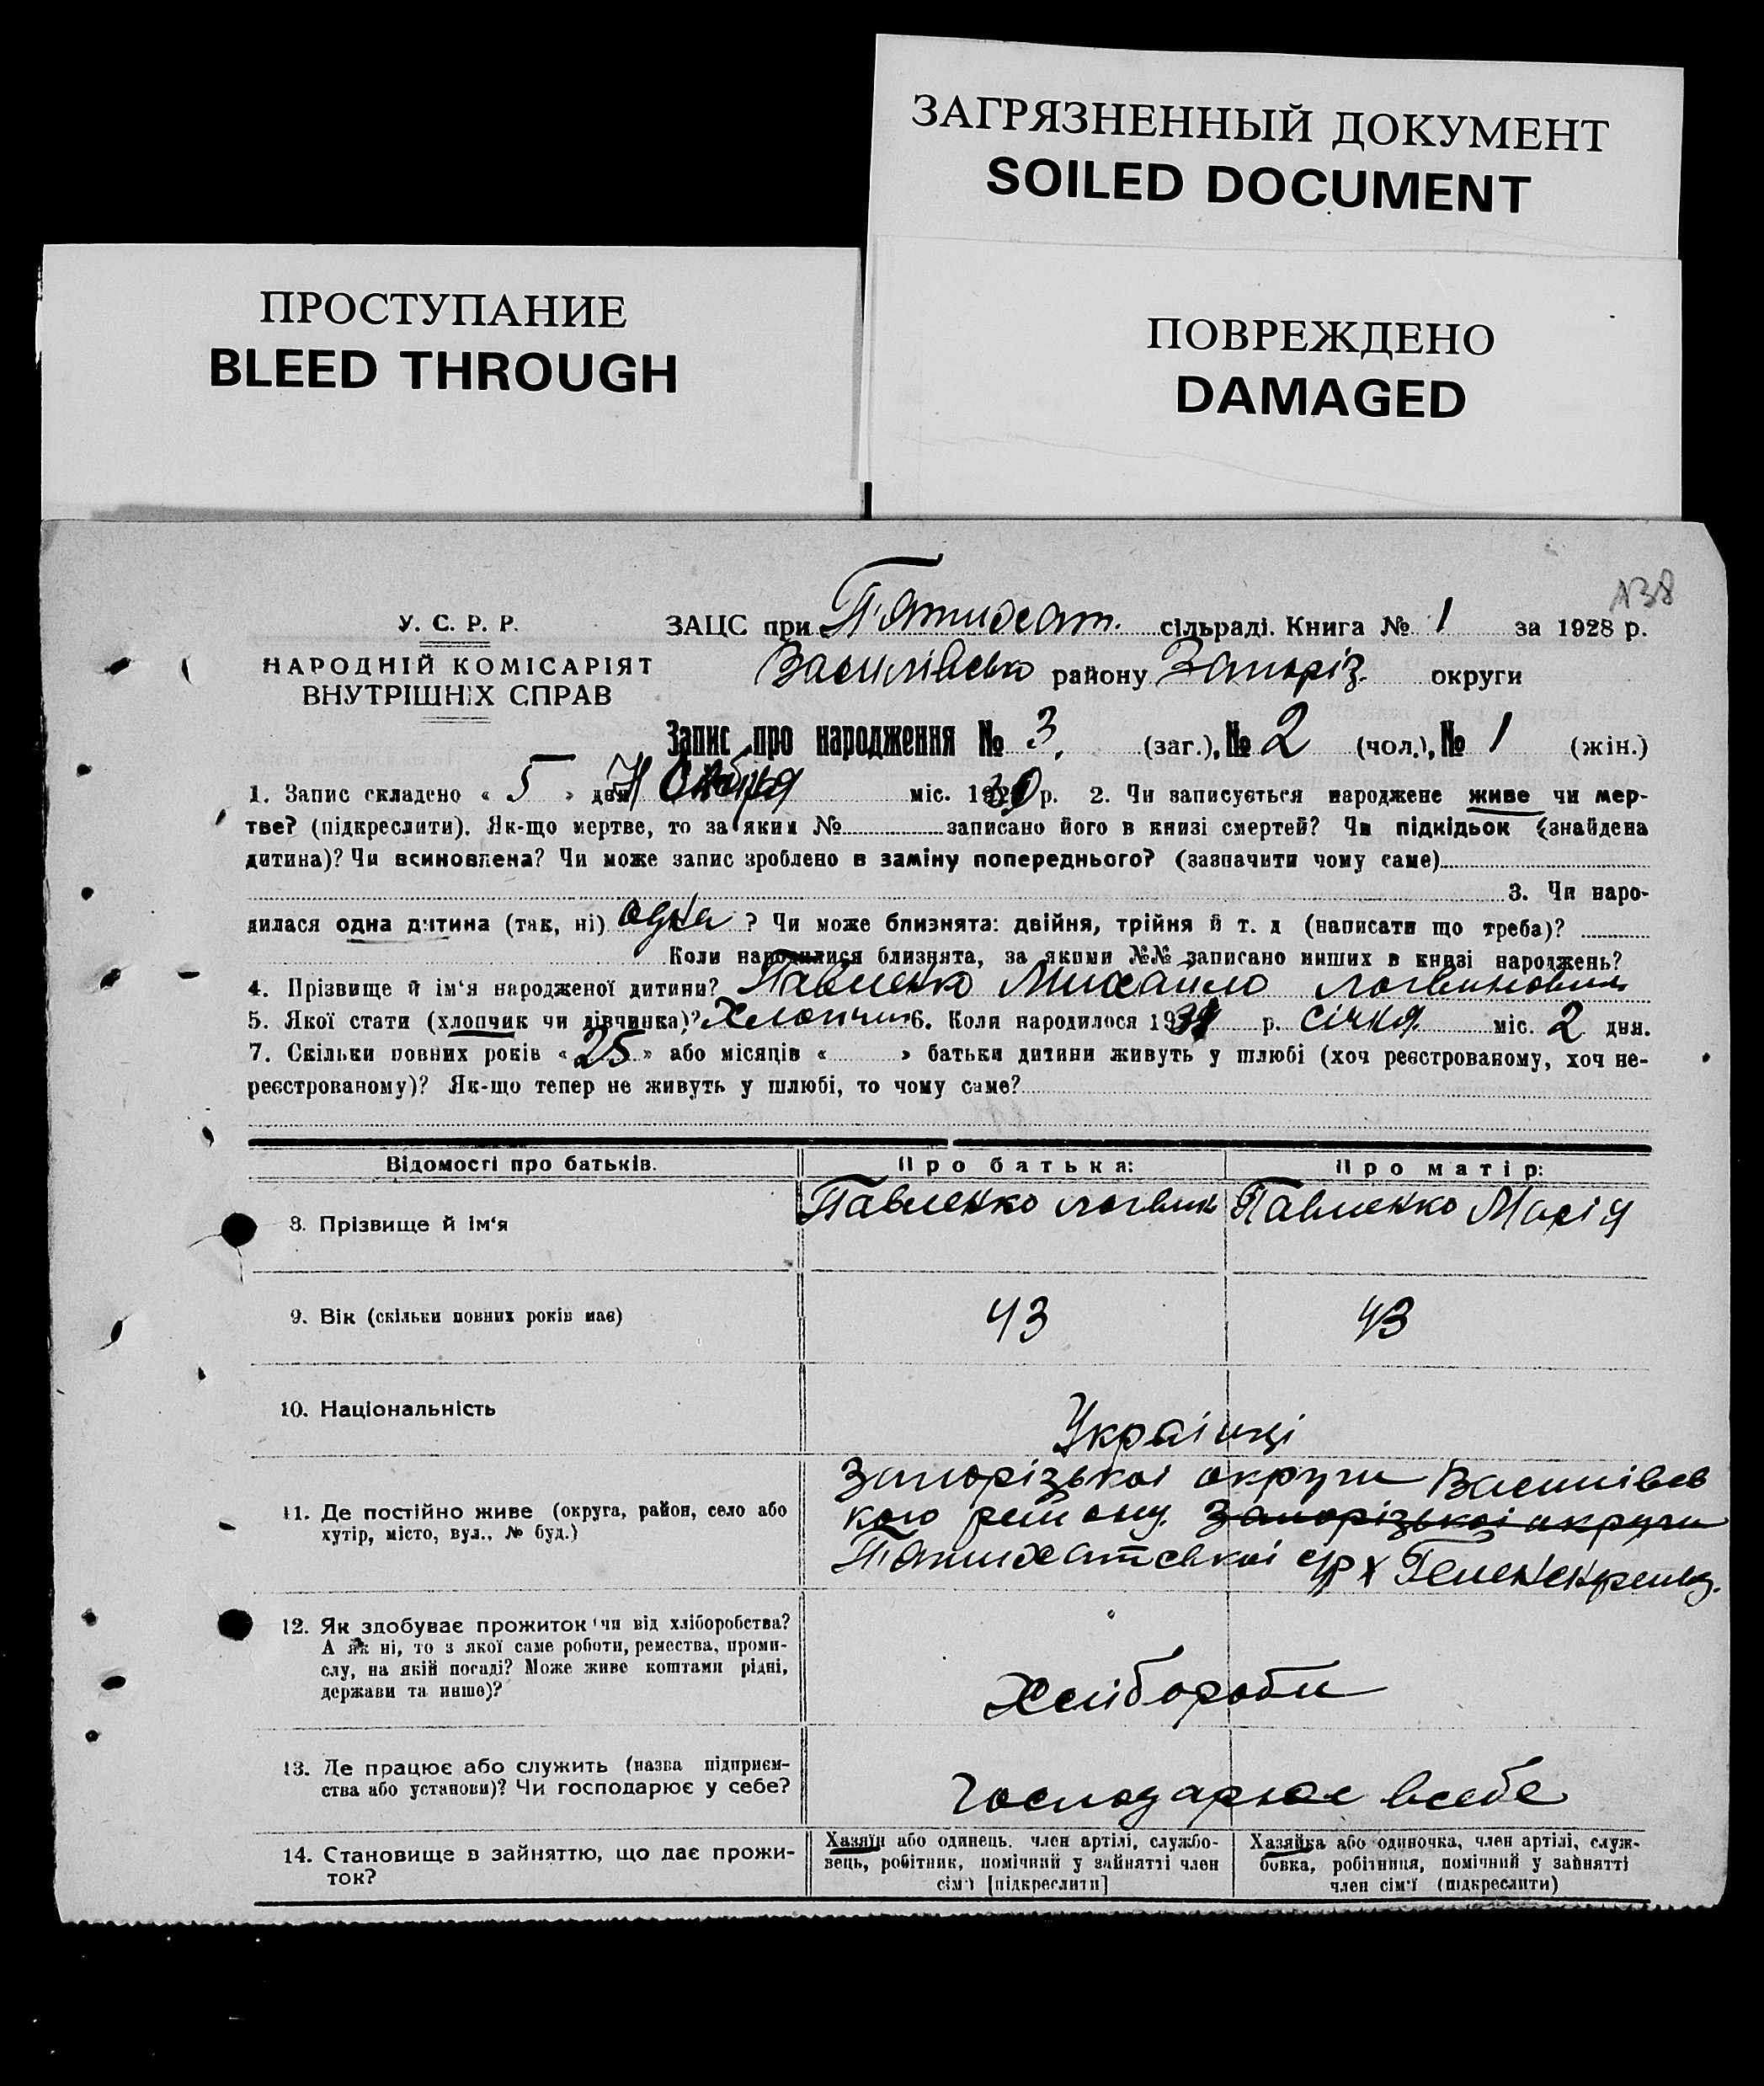 ЗАГРЯЗНЕННЫЙ ДОКУМЕНТ
SOILED DOCUMENT
ПРОСТУПАНИЕ
BLEED THROUGH
ПОВРЕЖДЕНО
DAMAGED
138
У. С. Р. Р.
НАРОДНІЙ КОМІСАРІЯТ
ВНУТРІШНІХ СПРАВ
ЗАЦС при П'ятихат. сільраді. Книга № 1 за 1928 р.
Василівсько району Запоріз. округи
Запис про народження № 3. (заг.), № 2 (чол.), № 1 (жін.)
1. Запис складено « 5 » дня міс. 1930 р. 2. Чи записується народжене живе чи мер-
тве? (підкреслити). Як-що мертве, то за яким № записано його в книзі смертей? Чи підкідьок (знайдена
дитина)? Чи всиновлена? Чи може запис зроблено в заміну попереднього? (зазначити чому саме)
3. Чи наро-
дилася одна дитина (так, ні) одна ? Чи може близнята: двійня, трійня й т. д (написати що треба)?
Коли народилися близнята, за якими №№ записано инших в книзі народжень?
4. Прізвище й ім'я народженої дитини? Павленко Михайло Логвинович
5. Якої стати (хлопчик чи дівчинка)? Хлопчик 6. Коли народилося 19 р. січня міс. 2 дня.
7. Скільки повних років « 25 » або місяців « » батьки дитини живуть у шлюбі (хоч реєстрованому, хоч не-
реєстрованому)? Як-що тепер не живуть у шлюбі, то чому саме?
Відомості про батьків.
Про батька:
Про матір:
8. Прізвище й ім'я
Павленко Логвин
Павленко Марія
9. Вік (скільки повних років має)
43
43
10. Національність
Українці
11. Де постійно живе (округа, район, село або
хутір, місто, вул., № буд.)
Запорізької округи Василівсь
кого району. Запорізької округи
П'ятихатської с/р х
12. Як здобуває прожиток чи від хліборобства?
А як ні, то з якої саме роботи, ремества, проми-
слу, на якій посаді? Може живе коштами рідні,
держави та инше)?
Хлібороби
13. Де працює або служить (назва підприєм-
ства або установи)? Чи господарює у себе?
Господарює всебе
14. Становище в зайняттю, що дає прожи-
ток?
Хазяїн або одинець, член артілі, службо-
вець, робітник, помічний у зайнятті член
сім'ї [підкреслити]
Хазяйка або одиночка, член артілі, служ-
бовка, робітниця, помічний у зайнятті
член сім'ї (підкреслити)